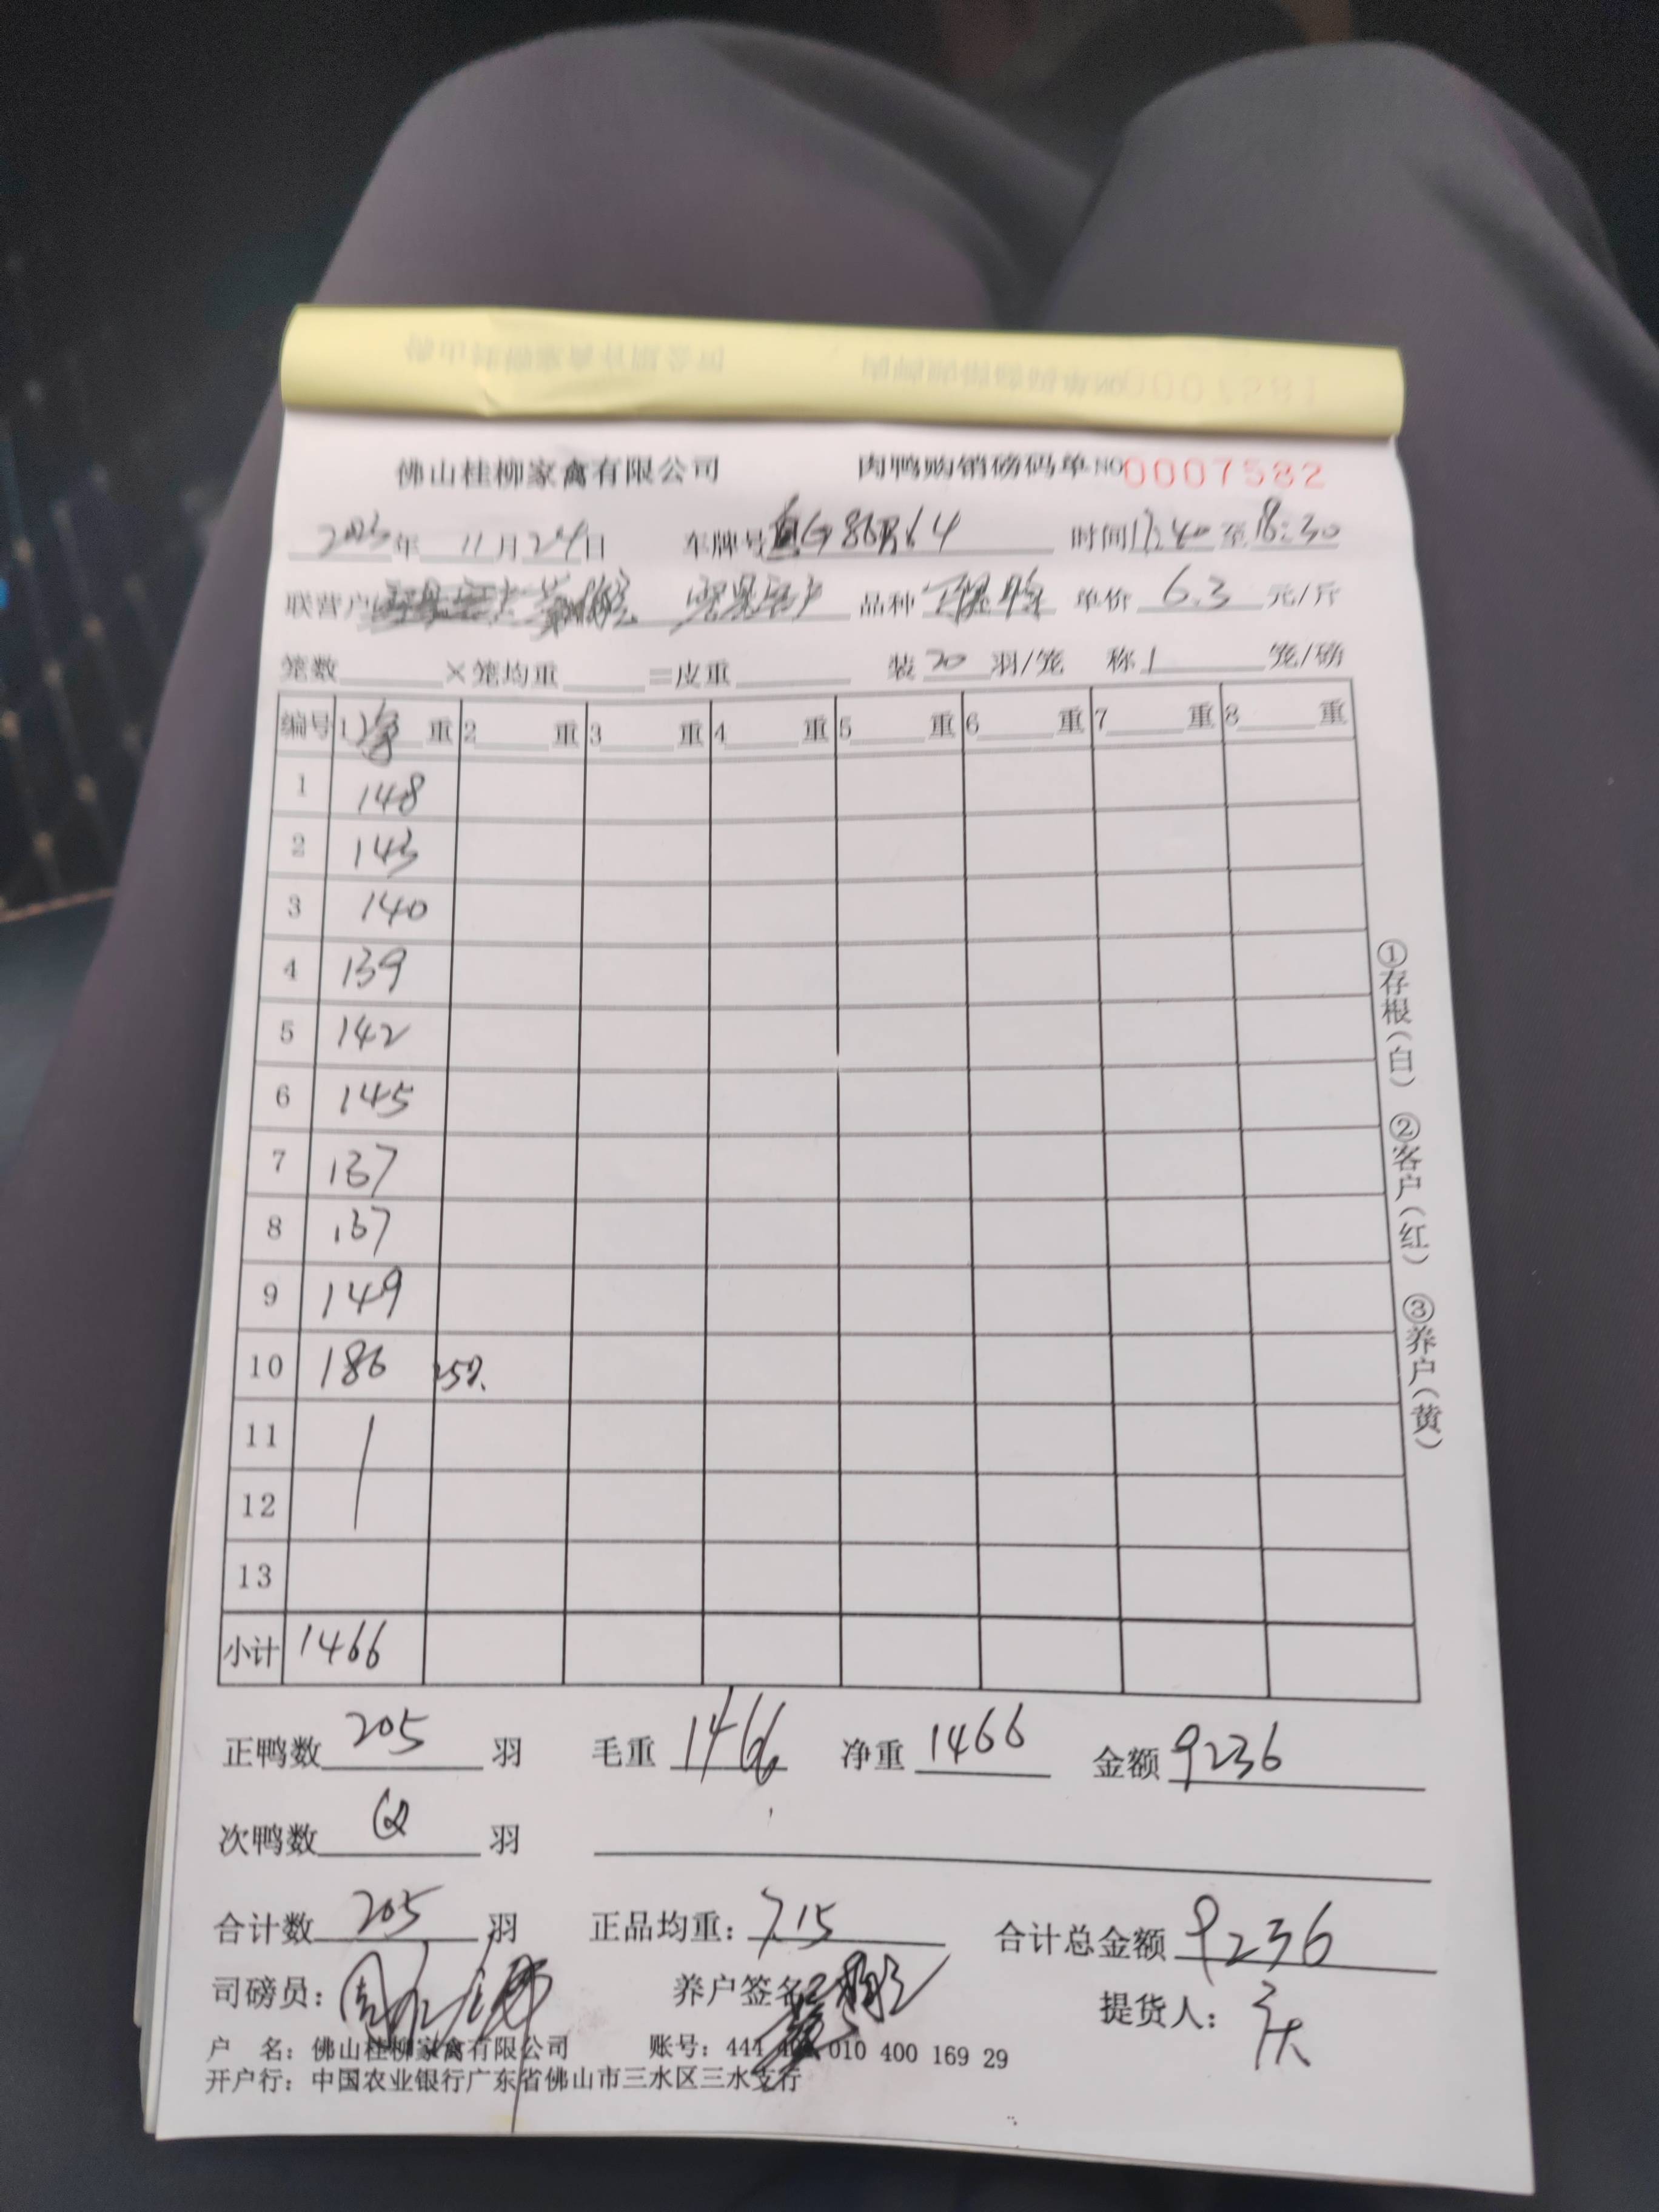 佛山桂柳家禽有限公司 肉鸭购销磅码单 NO 0007582
2023年 11月24日 车牌号 时间17:40至18:30
联营户 品种 单价 6.3 元/斤
笼数 ×笼均重 =皮重 装 20 羽/笼 称 1 笼/磅
编号 1 重 2 重 3 重 4 重 5 重 6 重 7 重 8 重
1 148
2 143
3 140
4 139
5 142
6 145
7 137
8 137
9 149
10 186 25只
11
12
13
小计 1466
正鸭数 205 羽 毛重 1466 净重 1466 金额 9236
次鸭数 羽
合计数 205 羽 正品均重：7.15 合计总金额 9236
司磅员： 养户签名 提货人：
户 名：佛山桂柳家禽有限公司 账号：444 010 400 169 29
开户行：中国农业银行广东省佛山市三水区三水支行
①存根（白） ②客户（红） ③养户（黄）